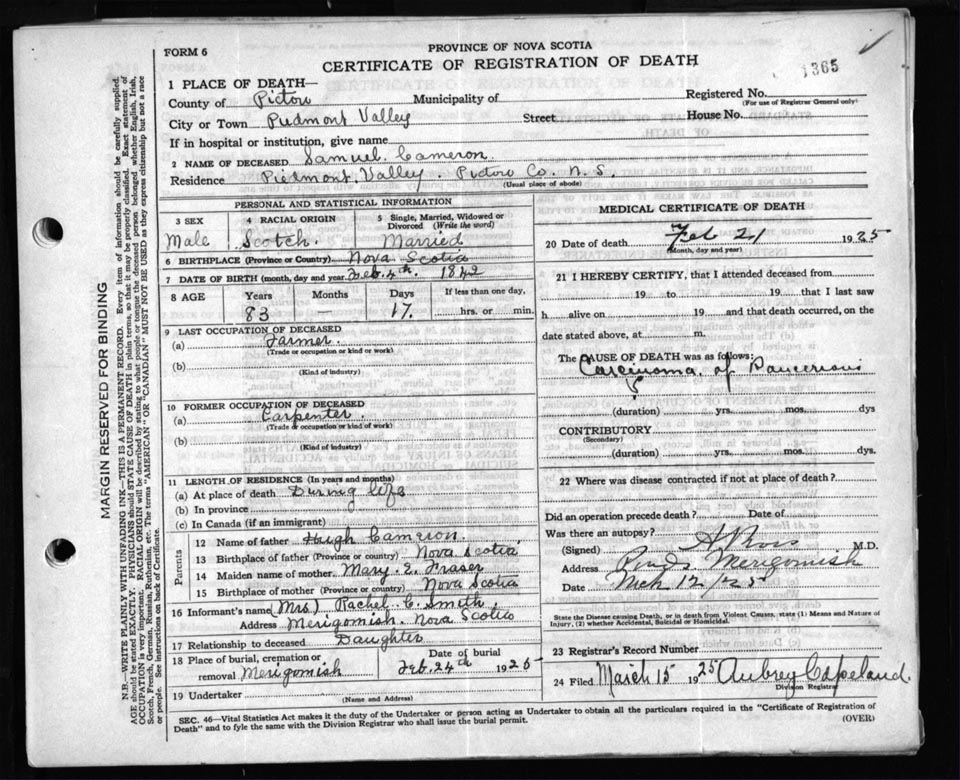 FORM 6
PROVINCE OF NOVA SCOTIA
CERTIFICATE OF REGISTRATION OF DEATH
1365
1 PLACE OF DEATH—
County of Pictou Municipality of
Registered No.
(For use of Registrar General only)
City or Town Piedmont Valley Street House No.
If in hospital or institution, give name
2 NAME OF DECEASED Samuel Cameron
Residence Piermont Valley. Pictou Co. N. S.
(Usual place of abode)
PERSONAL AND STATISTICAL INFORMATION
3 SEX
Male
4 RACIAL ORIGIN
Scotch.
5 Single, Married, Widowed or Divorced (Write the word)
Married
6 BIRTHPLACE (Province or Country) Nova Scotia
7 DATE OF BIRTH (month, day and year) Feb. 4th. 1842
8 AGE
Years Months Days If less than one day,
83 17. hrs. or min.
9 LAST OCCUPATION OF DECEASED
(a) Farmer.
(Trade or occupation or kind of work)
(b)
(Kind of industry)
10 FORMER OCCUPATION OF DECEASED
(a) Carpenter.
(Trade or occupation or kind of work)
(b)
(Kind of industry)
11 LENGTH OF RESIDENCE (In years and months)
(a) At place of death During life
(b) In province
(c) In Canada (if an immigrant)
Parents
12 Name of father Hugh Cameron.
13 Birthplace of father (Province or country) Nova Scotia
14 Maiden name of mother Mary. E. Fraser
15 Birthplace of mother (Province or country) Nova Scotia
16 Informant's name (Mrs) Rachel C. Smith.
Address Merigomish. Nova Scotia
17 Relationship to deceased Daughter
18 Place of burial, cremation or removal Merigomish
Date of burial
Feb. 24th 1925
19 Undertaker
(Name and Address)
MEDICAL CERTIFICATE OF DEATH
20 Date of death Feb 21 1925
(Month, day and year)
21 I HEREBY CERTIFY, that I attended deceased from
19 to 19 that I last saw
h alive on 19 and that death occurred, on the
date stated above, at m.
The CAUSE OF DEATH was as follows:
Carcinoma of
(duration) yrs. mos. dys
CONTRIBUTORY
(Secondary)
(duration) yrs. mos. dys.
22 Where was disease contracted if not at place of death?
Did an operation precede death? Date of
Was there an autopsy?
(Signed) M.D.
Address Merigomish
Date Mch 12 / 25
State the Disease causing Death, or in death from Violent Causes, state (1) Means and Nature of Injury, (2) whether Accidental, Suicidal or Homicidal.
23 Registrar's Record Number
24 Filed March 15 1925 Aubrey Copeland.
Division Registrar
SEC. 46—Vital Statistics Act makes it the duty of the Undertaker or person acting as Undertaker to obtain all the particulars required in the "Certificate of Registration of
Death" and to fyle the same with the Division Registrar who shall issue the burial permit.
(OVER)
MARGIN RESERVED FOR BINDING
N.B.—WRITE PLAINLY WITH UNFADING INK—THIS IS A PERMANENT RECORD. Every item of information should be carefully supplied.
AGE should be stated EXACTLY. PHYSICIANS should STATE CAUSE OF DEATH in plain terms, so that it may be properly classified. Exact statement of
OCCUPATION is very important. RACIAL ORIGIN will be described by stating to what people or tongue the deceased person belonged whether English, Irish,
Scotch, French, German, Russian, Ruthenian, etc. The terms "AMERICAN" OR "CANADIAN" MUST NOT BE USED as they express citizenship but not a race
or people. See instructions on back of Certificate.